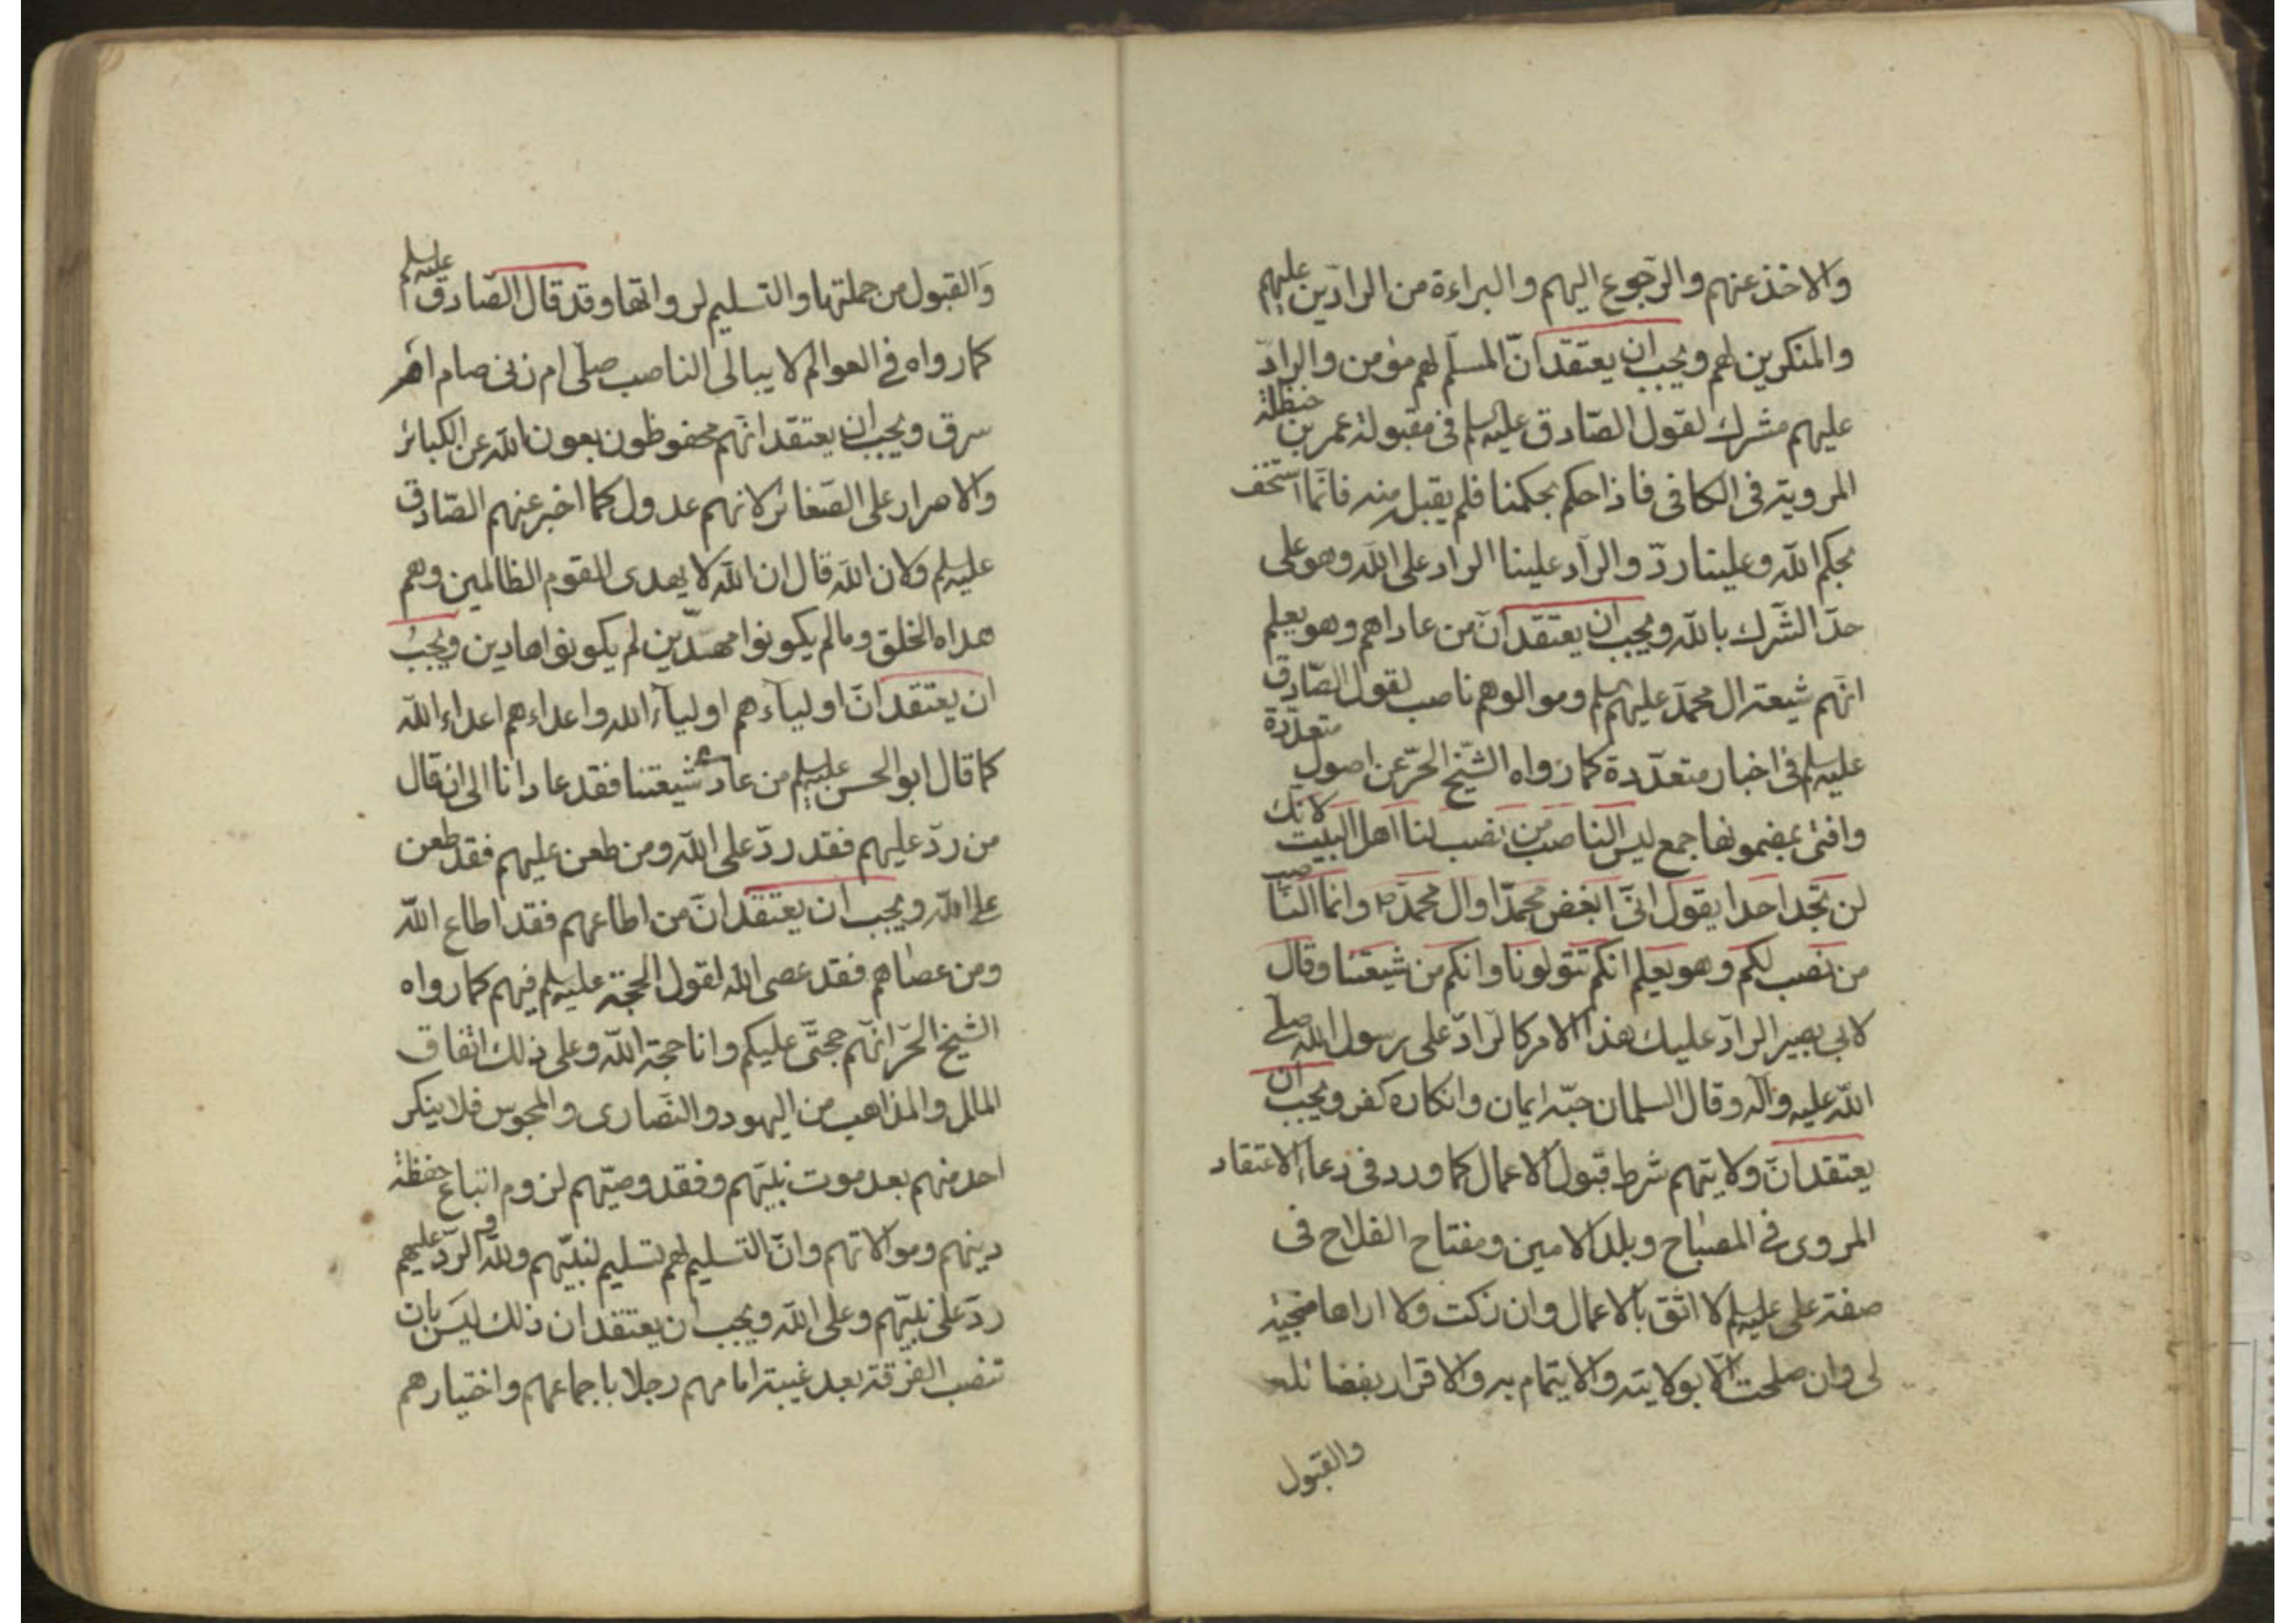 والاخذ عنهم والرّجوع اليهم والبراءة من الرادّين عليهم
والمنكرين لهم ويجب ان يعتقد انّ المسلّم لهم مؤمن والرادّ
عليهم مشرك لقول الصّادق عليه السلم فى مقبولة عمر بن حنظلة
المروية فى الكافى فاذا حكم بحكمنا فلم يقبل منه فانّما استخف
بحكم الله وعلينا ردّ والرادّ علينا الراد على الله وهو على
حدّ الشّرك بالله ويجب ان يعتقد انّ من عاداهم وهو يعلم
انّهم شيعة ال محمّد عليهم السلم وموالوهم ناصب لقول الصّادق
عليه السلم فى اخبار متعدّدة كما رواه الشّيخ الحرّ عن اصول متعدّدة
وافتى بمضمونها جمع ليس الناصب من نصب لنا اهل البيت لانك
لن تجد احدا يقول انّى ابغض محمّدا وال محمّد ص وانما النّاصب
من نصب لكم وهو يعلم انكم تتولونا وانكم من شيعتنا وقال
لابى بصير الرادّ عليك هذا الامر كالرادّ على رسول الله صلى
الله عليه واله وقال السلمان حبّه ايمان وانكاره كفر ويجب ان
يعتقد انّ ولايتهم شرط قبول الاعمال كما ورد فى دعاء الاعتقاد
المروى فى المصباح وبلد الامين ومفتاح الفلاح فى
صفة على عليه السلم لا اثق بالاعمال وان زكت ولا اراها منجية
لى وان صلحت الّا بولايته والايتمام به والاقرار بفضائله
والقبول
والقبول من حملتها والتسليم لرواتها وقد قال الصّادق عليه السلم
كما رواه فى العوالم لا يبالى الناصب صلّى ام زنى صام ام
سرق ويجب ان يعتقد انّهم محفوظون بعون الله عن الكبائر
والاصرار على الصّغائر لانهم عدول كما اخبر عنهم الصّادق
عليه السلم ولان الله قال ان الله لا يهدى القوم الظالمين وهم
هداه الخلق وما لم يكونوا مهتدّين لم يكونوا هادين ويجب
ان يعتقد انّ اولياءهم اولياء الله واعداءهم اعداء الله
كما قال ابو الحسن عليه السلم من عاد شيعتنا فقد عادانا الى ان قال
من ردّ عليهم فقد ردّ على الله ومن طعن عليهم فقد طعن
على الله ويجب ان يعتقد انّ من اطاعهم فقد اطاع الله
ومن عصاهم فقد عصى الله لقول الحجة عليه السلم فيهم كما رواه
الشّيخ الحرّ انّهم حجتى عليكم وانا حجة الله وعلى ذلك اتّفاق
الملل والمذاهب من اليهود والنّصارى والمجوس فلا ينكر
احد منهم بعد موت نبيّهم وفقد وصيّهم لزوم اتباع حفظة
دينهم وموالاتهم وانّ التسليم لهم تسليم لنبيّهم ولله والردّ عليهم
ردّ على نبيّهم وعلى الله ويجب ان يعتقد ان ذلك ليس بان
تنصب الفرقة بعد غيبة امامهم رجلا باجماعهم واختيارهم